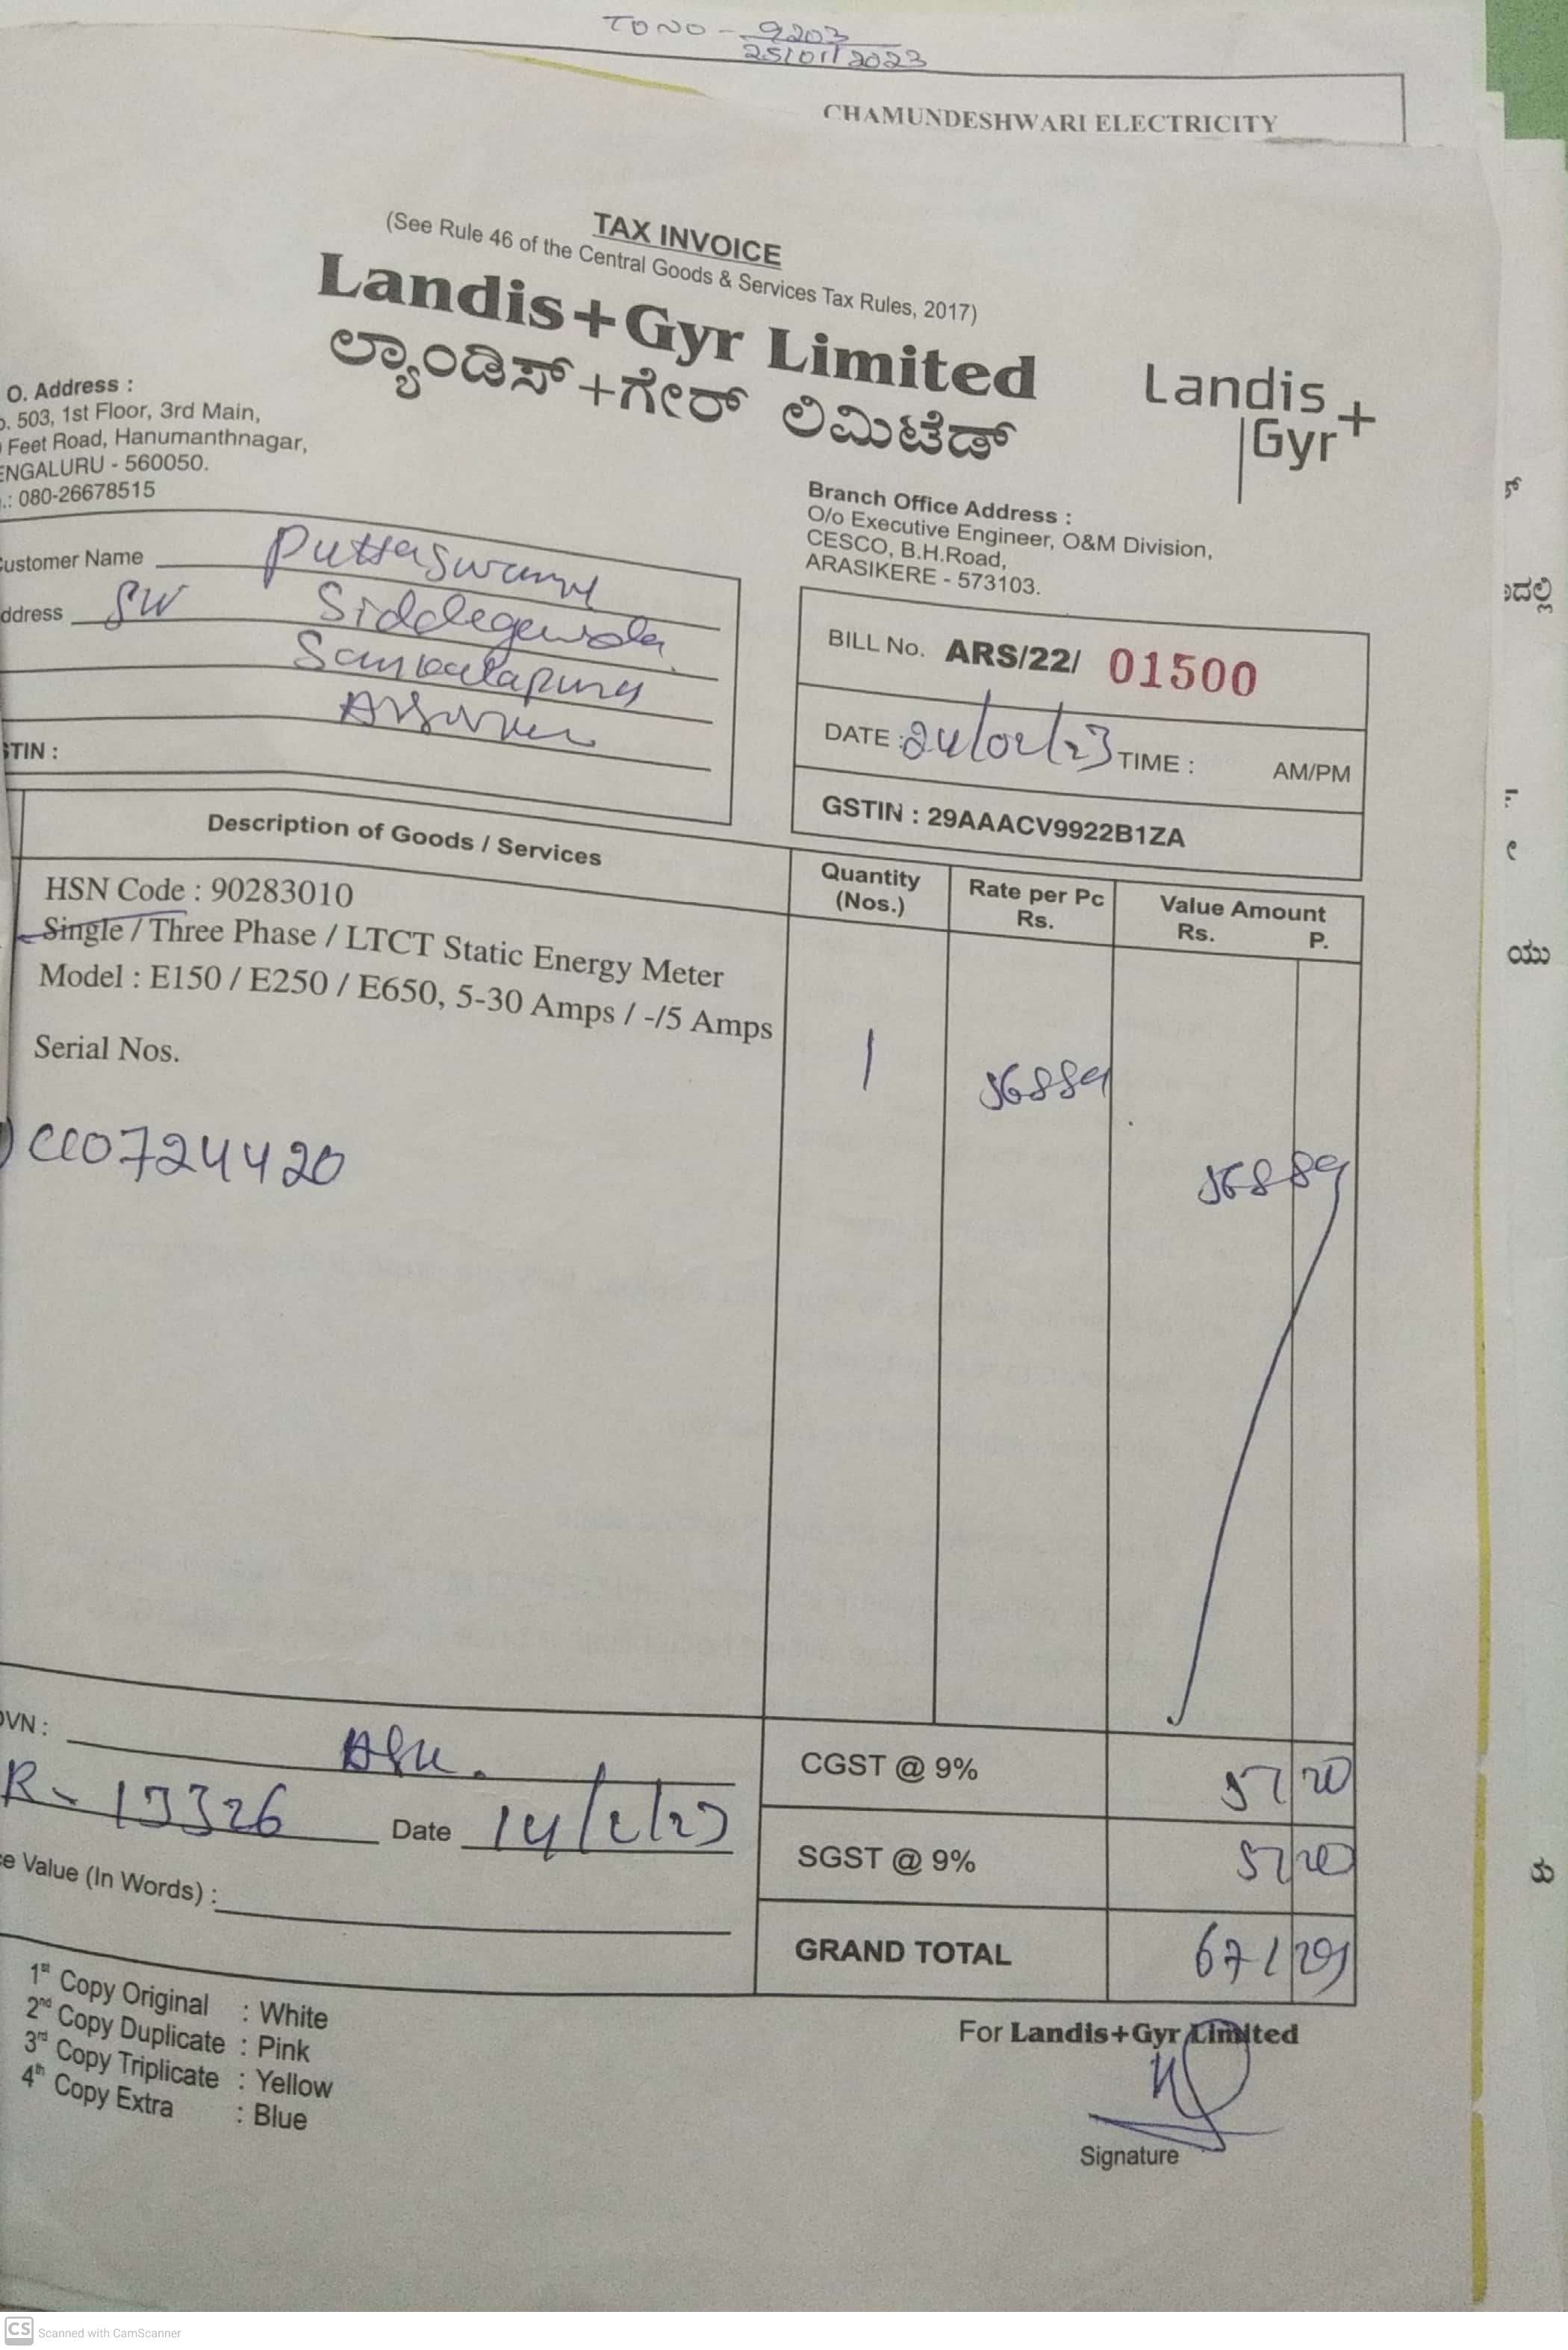 TONO - 9203
25/01/2023
CHAMUNDESHWARI ELECTRICITY
TAX INVOICE
(See Rule 46 of the Central Goods & Services Tax Rules, 2017)
Landis+Gyr Limited
ಲ್ಯಾಂಡಿಸ್+ಗೇರ್ ಲಿಮಿಟೆಡ್
Landis
Gyr+
O. Address :
503, 1st Floor, 3rd Main,
Feet Road, Hanumanthnagar,
ENGALURU - 560050.
.: 080-26678515
Branch Office Address :
O/o Executive Engineer, O&M Division,
CESCO, B.H.Road,
ARASIKERE - 573103.
Customer Name Puttaswamy
ddress S/W Siddegowda
STIN :
BILL No. ARS/22/ 01500
DATE : 24/02/23 TIME : AM/PM
GSTIN : 29AAACV9922B1ZA
Description of Goods / Services
Quantity
(Nos.)
Rate per Pc
Rs.
Value Amount
Rs. P.
HSN Code : 90283010
Single / Three Phase / LTCT Static Energy Meter
Model : E150 / E250 / E650, 5-30 Amps / -/5 Amps
Serial Nos.
1
56889
56889
CC0724420
OVN : ASK.
R- 13326 Date 14/2/23
e Value (In Words) :
CGST @ 9% 51 20
SGST @ 9% 51 20
GRAND TOTAL 671 29
1st Copy Original : White
2nd Copy Duplicate : Pink
3rd Copy Triplicate : Yellow
4th Copy Extra : Blue
For Landis+Gyr Limited
Signature
ದಲ್ಲಿ
ಯು
ಕು
CS Scanned with CamScanner